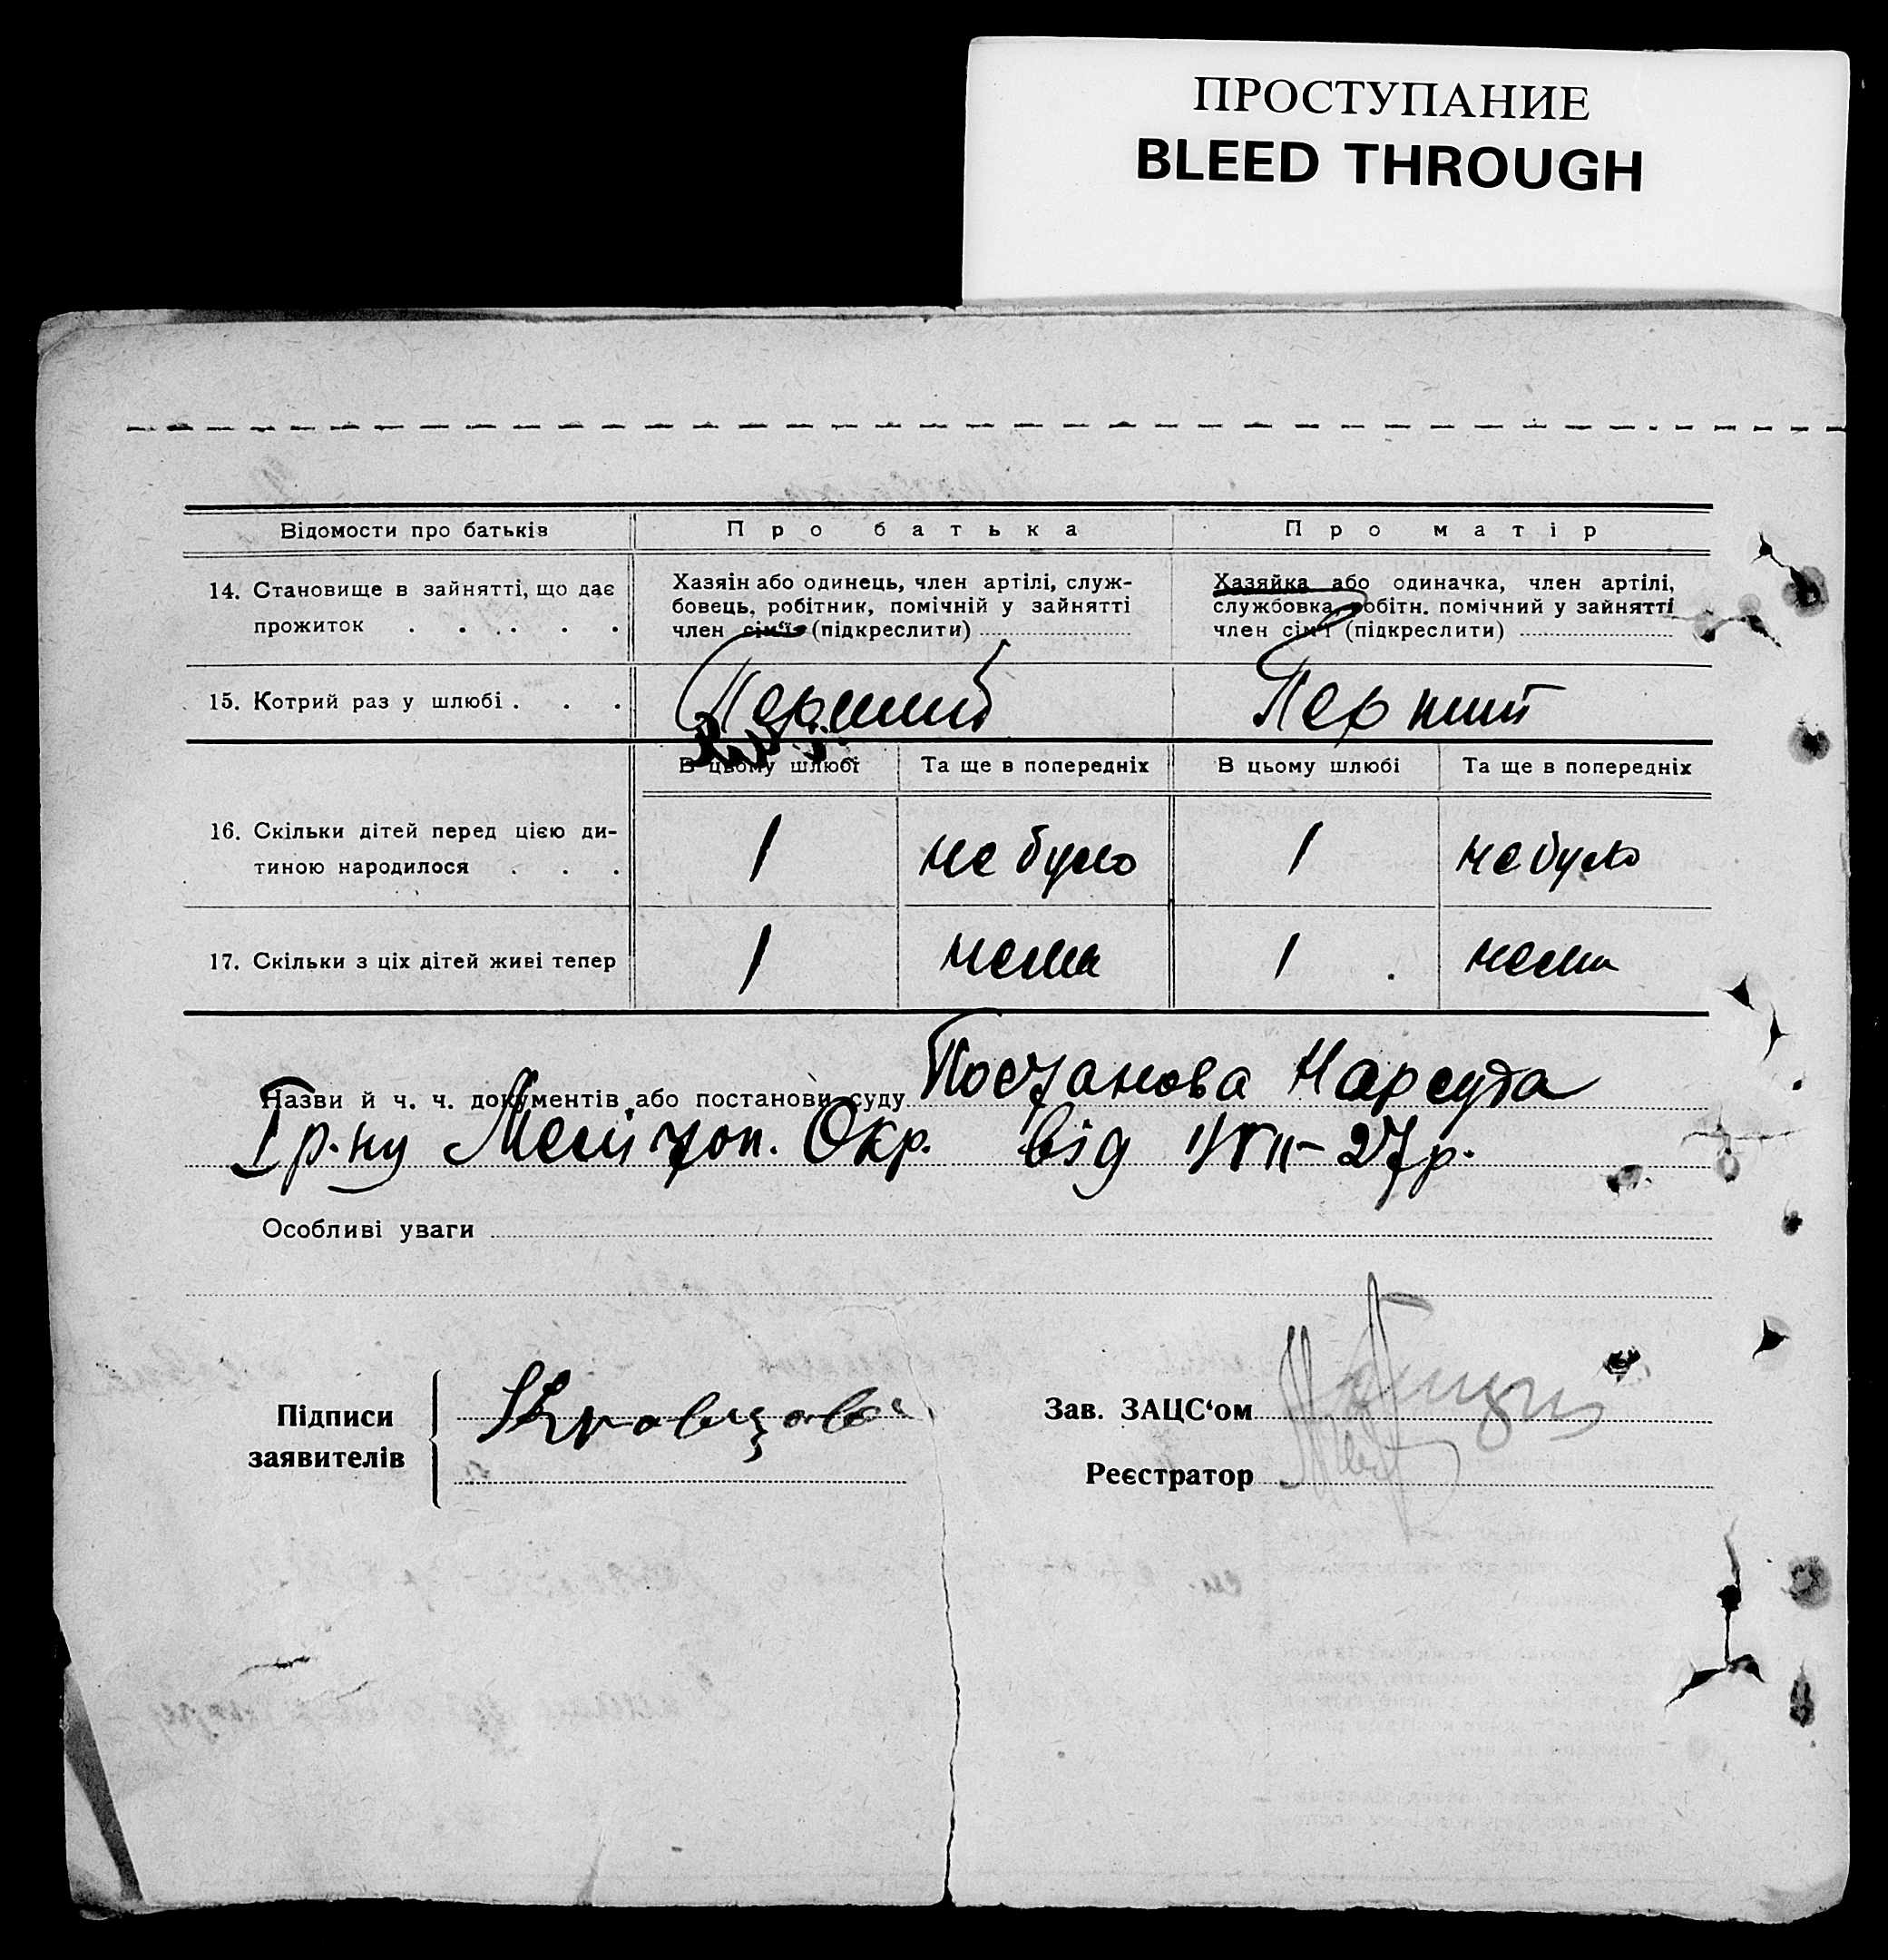 ПРОСТУПАНИЕ
BLEED THROUGH
Відомости про батьків
Про батька
Про матір
14. Становище в зайнятті, що дає
прожиток . . . . .
Хазяін або одинець, член артілі, служ-
бовець, робітник, помічній у зайнятті
член сім‘ї (підкреслити)
Хазяйка або одиначка, член артілі,
службовка, робітн. помічний у зайнятті
член сім‘ї (підкреслити)
15. Котрий раз у шлюбі . . .
Перший
Перший
В цьому шлюбі
Та ще в попередніх
В цьому шлюбі
Та ще в попередніх
16. Скільки дітей перед цією ди-
тиною народилося . . .
1
не було
1
не було
17. Скільки з ціх дітей живі тепер
1
нема
1
нема
Назви й ч. ч. документів або постанови суду Постанова Нарсуда
I р-ну Меліtоп. Окр. від 1/VII-27р.
Особливі уваги
Підписи
заявителів
Кравцова
Зав. ЗАЦС‘ом
Реєстратор